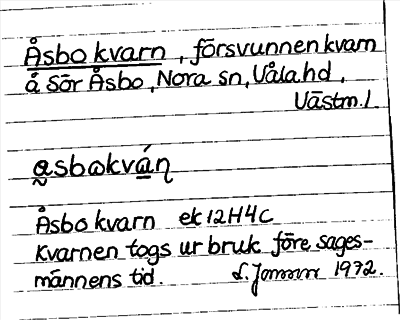 Åsbo kvarn, försvunnen kvarn
å Sör Åsbo, Nora sn, Våla hd,
Västm. l.
a̰sbωkvá̲ɳ
Åsbo kvarn ek 12H4C
Kvarnen togs ur bruk före sages-
männens tid. L. Jonsson 1972.